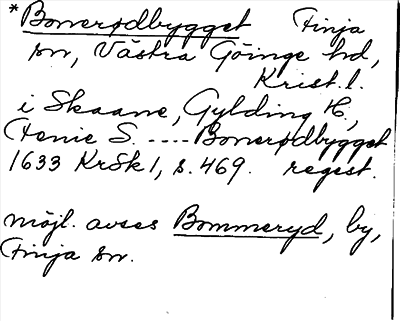 *Bonerødbygget Finja
sn, Västra Göinge hd,
Krist. l.
i Skaane, Gylding H.,
Fenie S. ---- Bonerødbygget
1633 KrSk 1, s. 469. regest.
möjl. avses Bommeryd, by,
Finja sn.